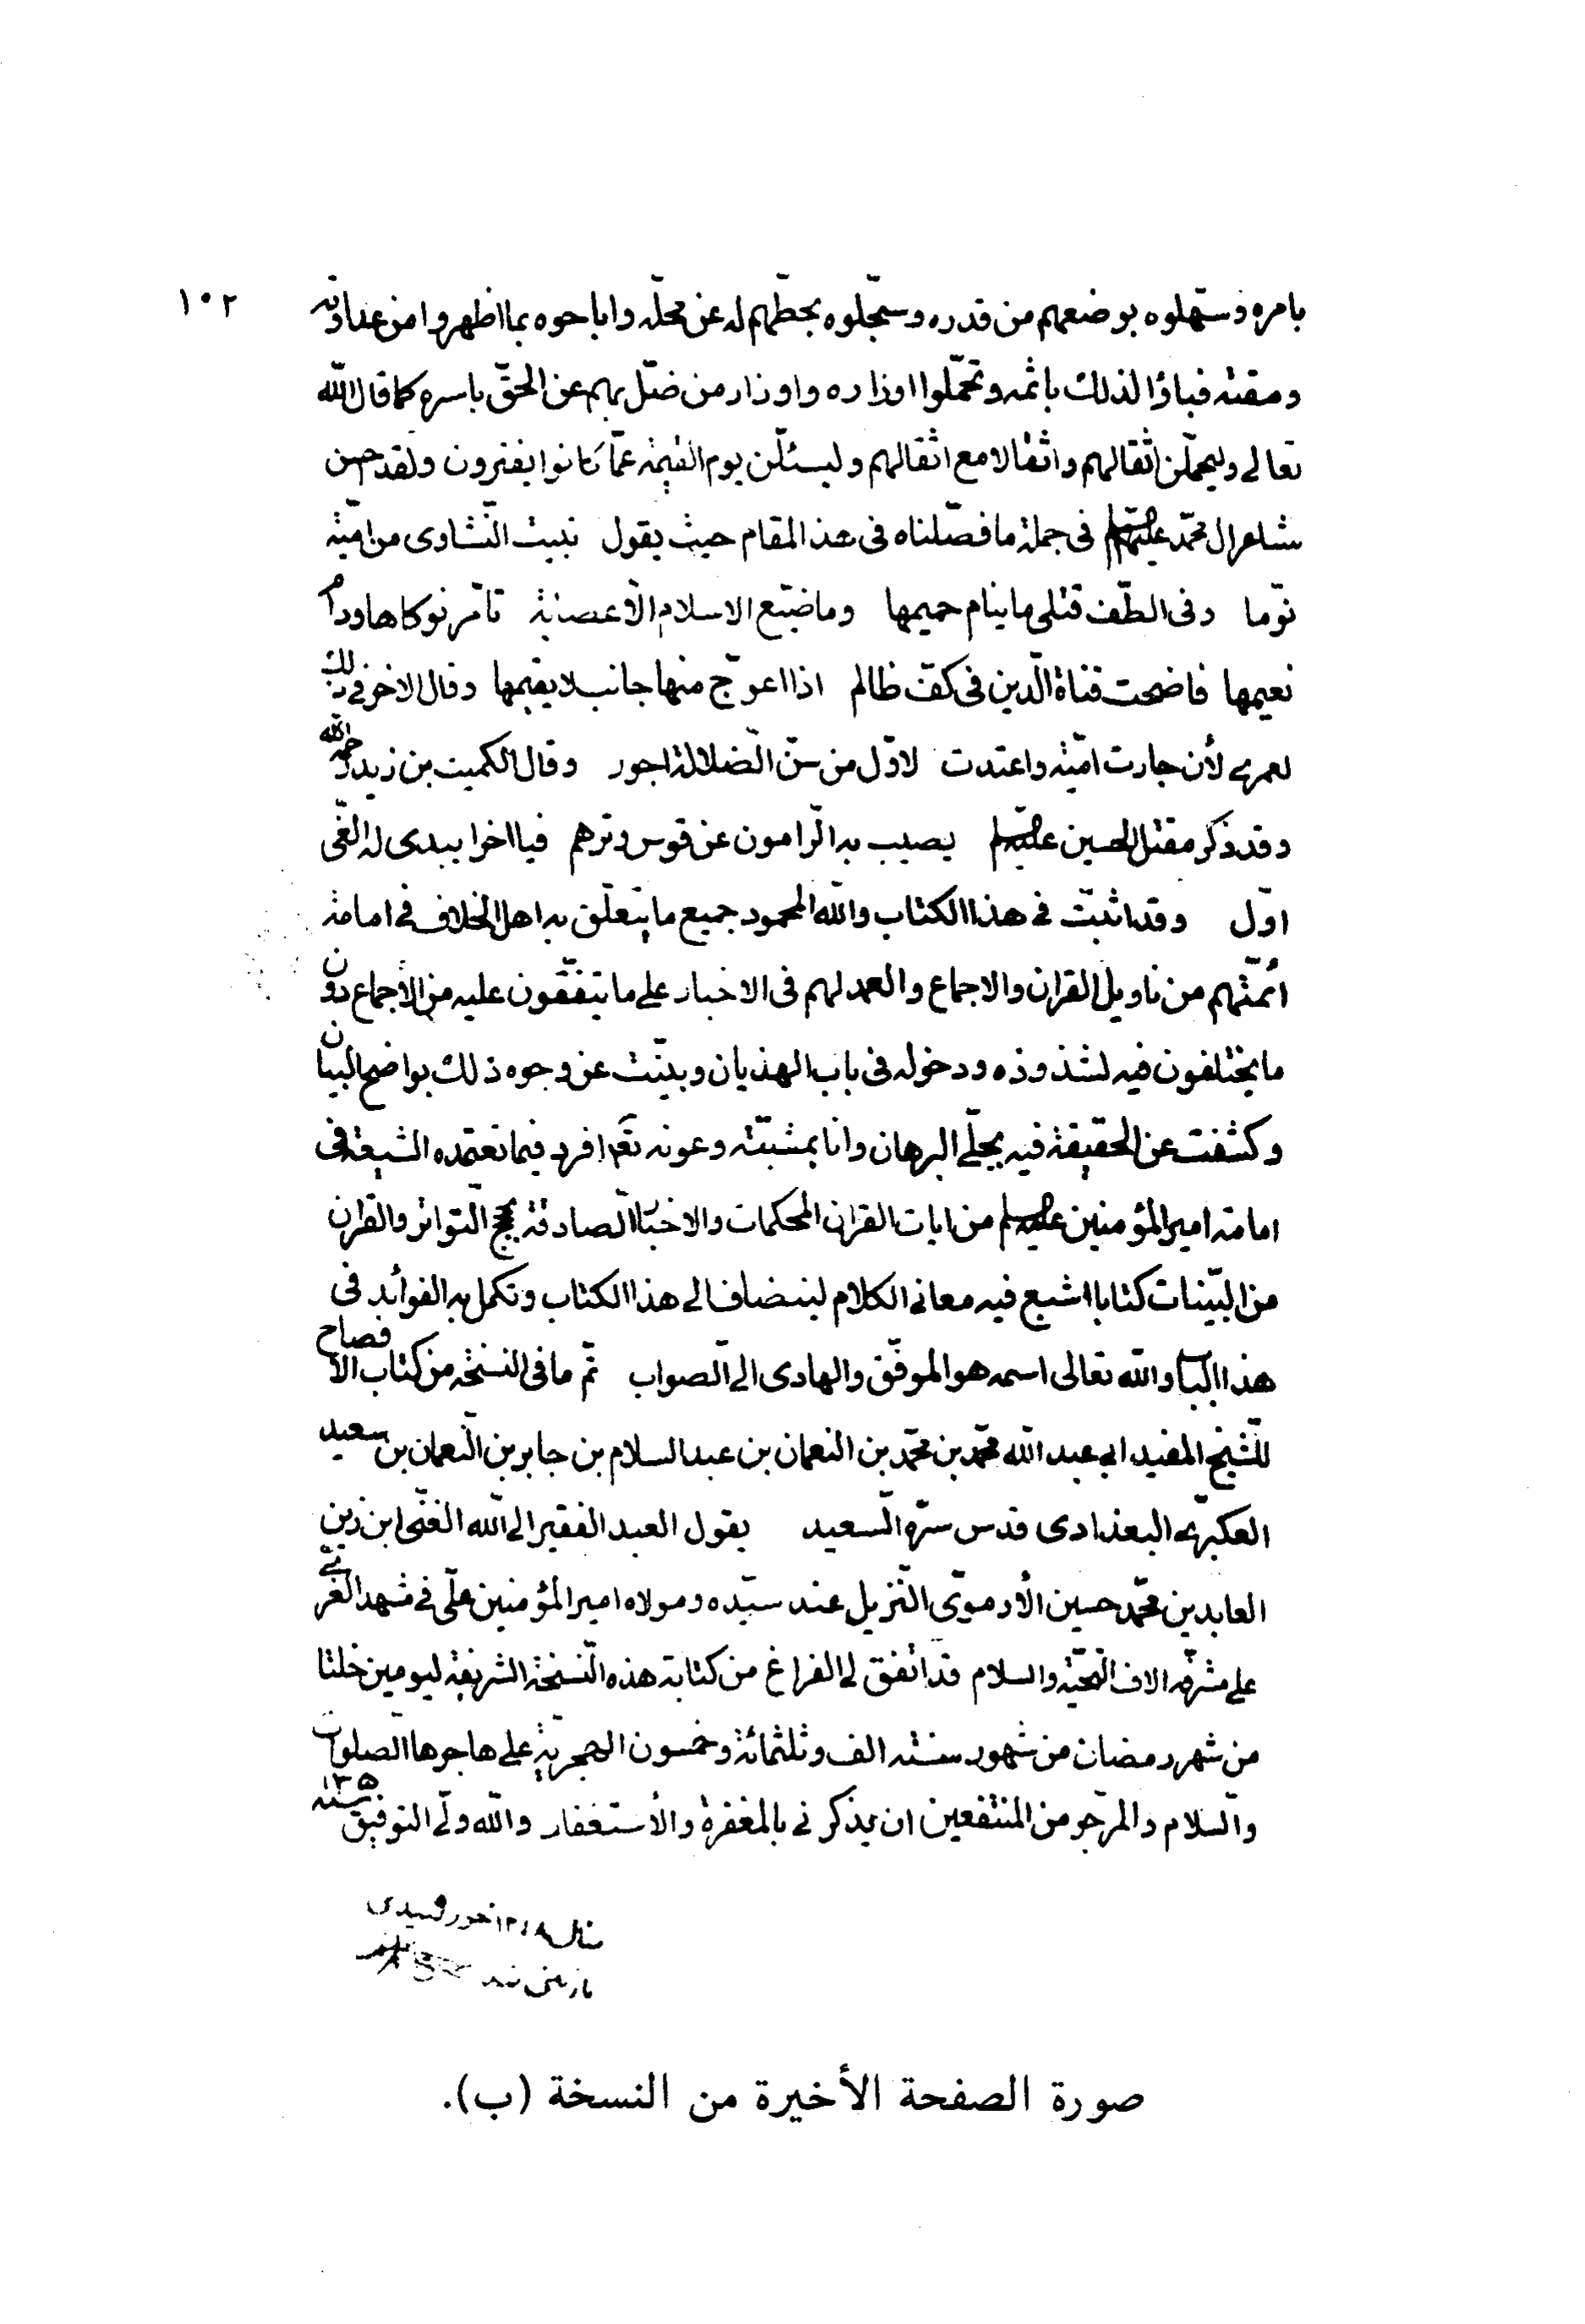 ١٠٢
بامره وسهّلوه بوضعهم من قدره وسجّلوه بحطّهم له عن محلّه واباحوه بما اظهروا من عداوته
ومقته فباؤا لذلك باثمه وتحمّلوا اوزاره واوزار من ضلّ بهم عن الحقّ باسره كما قال الله
تعالى وليحملنّ اثقالهم واثقالا مع اثقالهم وليسئلنّ يوم القيمة عمّا كانوا يفترون ولقد حسن
شاعر ال محمّد عليهم في جملة ما فصّلناه في هذ المقام حيث يقول تبيت النّشاوى من اميّة
نوّما وفى الطّف قتلى ما ينام حميمها وما ضيّع الاسلام الّا عصابة تأمّر نوكاها ودام
نعيمها فاضحت قناة الدّين فى كفّ ظالم اذا اعوجّ منها جانب لا يقيمها وقال الاخر في ذلك
لعمرى لأن جارت اميّة واعتدت لاوّل من سنّ الضّلالة اجور وقال الكميت بن زيد رحمه الله
وقد ذكر مقتل الحسين عليه يصيب به الرّامون عن قوس وترهم فيا اخرا يبدى له الغىّ
اوّل وقد اثبتّ في هذا الكتاب والله المحمود جميع ما يتعلّق به اهل الخلاف في امامة
أئمّتهم من تاويل القران والاجماع والعمد لهم فى الاخبار على ما يتفقون عليه من الأجماع دون
ما يختلفون فيه لشذوذه ودخوله فى باب الهذيان وبيّنت عن وجوه ذلك بواضح البيان
وكشفت عن الحقيقة فيه بجلّي البرهان وانا بمشيّته وعونه تع افرد فيما تعتمده الشيعة فى
امامة امير المؤمنين عليه من ايات القران المحكمات والاخبار الصّادقة بحجج التّواتر والقران
من البيّنات كتابا اشبع فيه معاني الكلام لينضاف الى هذا الكتاب وتكمل به الفوائد فى
هذا الباب والله تعالى اسمه هو الموفّق والهادى الى الصّواب تمّ ما فى النسخة من كتاب الافصاح
للشّيخ المفيد ابي عبد الله محمّد بن محمّد بن النعمان بن عبد السلام بن جابر بن النّعمان بن سعيد
العكبرّى البغدادى قدس سرّه السّعيد يقول العبد الفقير الى الله الغنّى ابن زين
العابدين محمّد حسين الأرموّى النّزيل عند سيّده ومولاه امير المؤمنين علّى في مشهد الغرىّ
على مشرفه الاف التحيّة والسلام قد اتفق لى الفراغ من كتابة هذه النّسخة الشريفة ليومين خلتا
من شهر رمضان من شهور سنة الف وثلثمائة وخمسون الهجريّة على هاجرها الصّلوات
والسّلام والمرّجو من المنتفعين ان يذكرني بالمغفرة والأستغفار والله ولّي التوفيق سنة ١٣٥
بسال ١٣١٨ خورشيدى
بازبينى شد
صورة الصفحة الأخيرة من النسخة (ب).